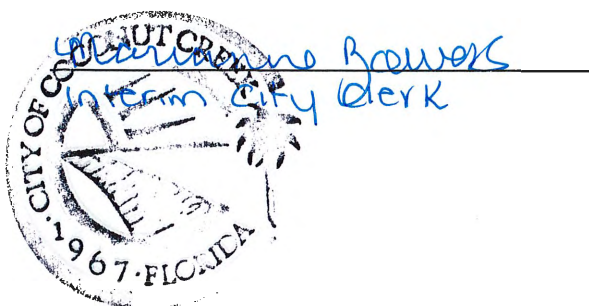 Marianne Bowers
Interim City Clerk
CITY OF COCONUT CREEK
1967 · FLORIDA